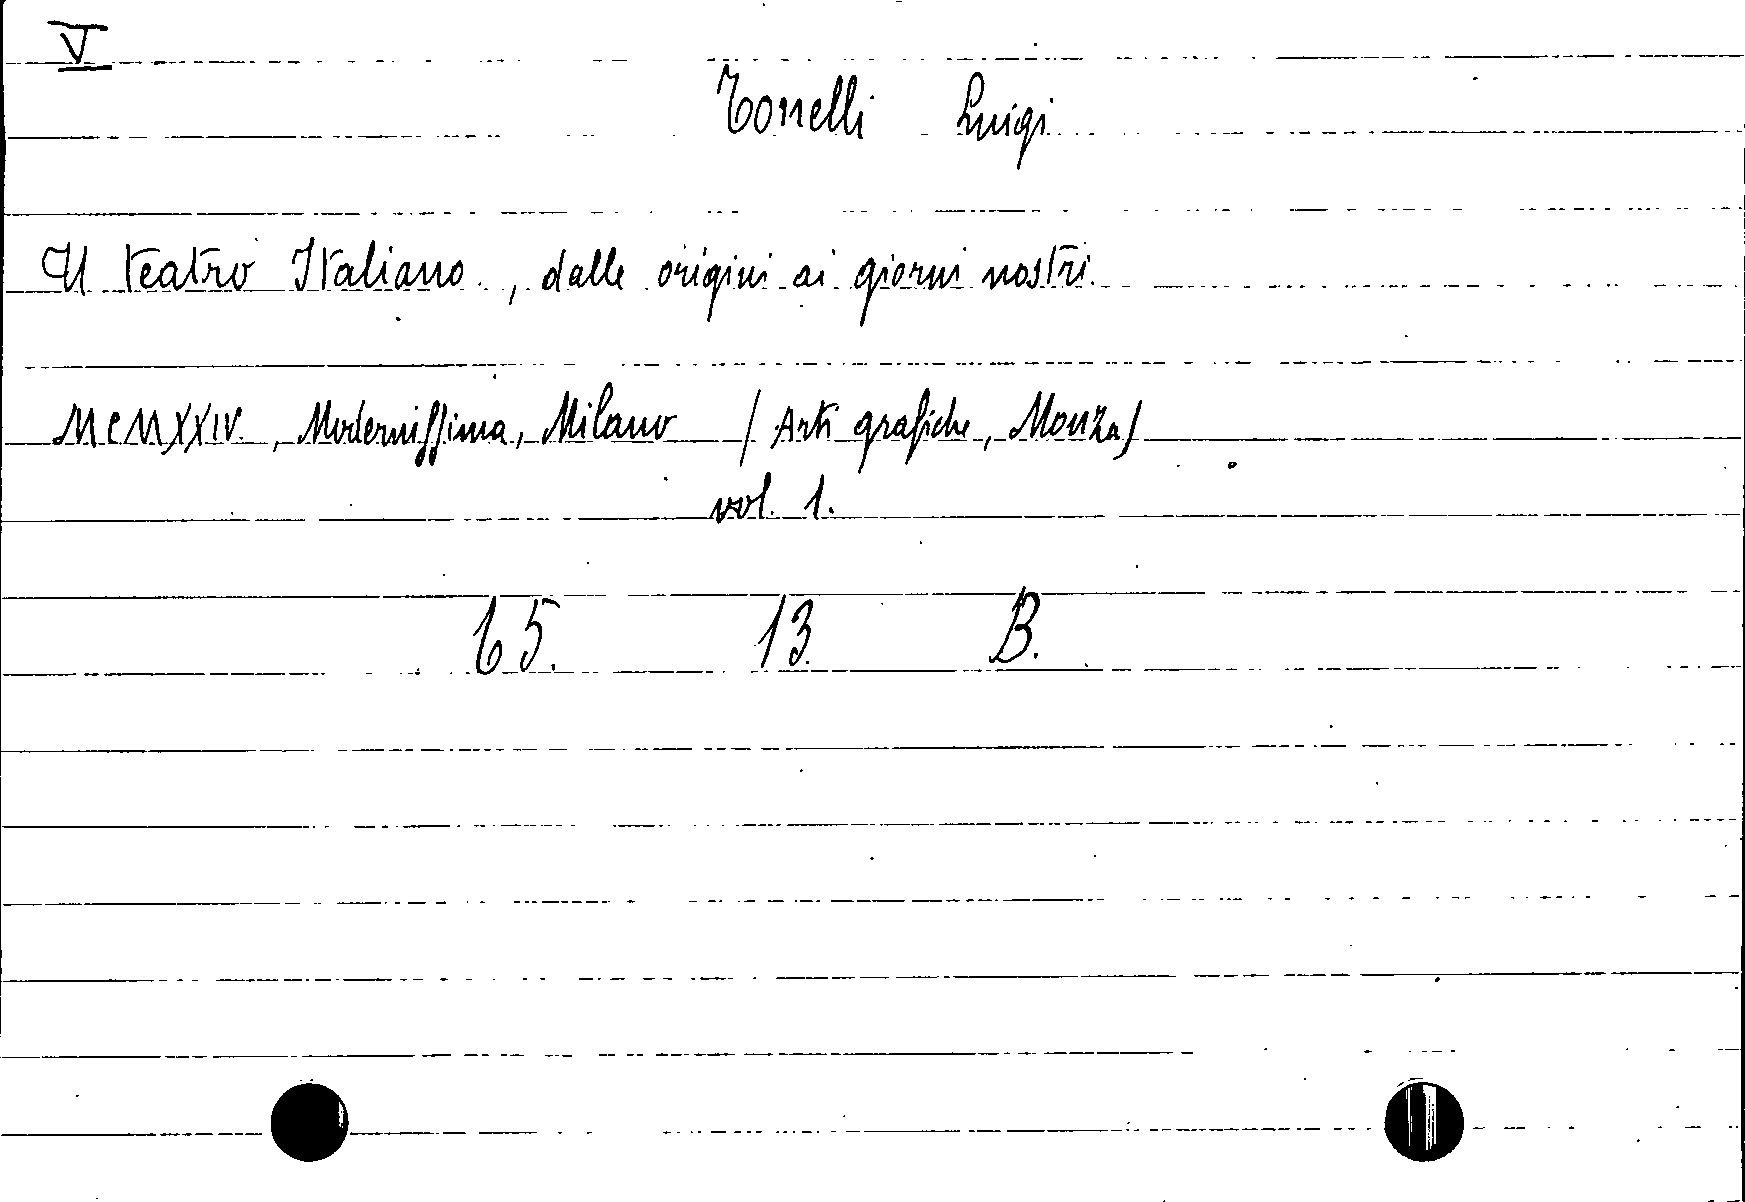 V
Tonelli Luigi
Il teatro Italiano, dalle origini ai giorni nostri.
MCMXXIV., Modernissima, Milano / Arti grafiche, Monza/
vol. 1.
65. 13. B.